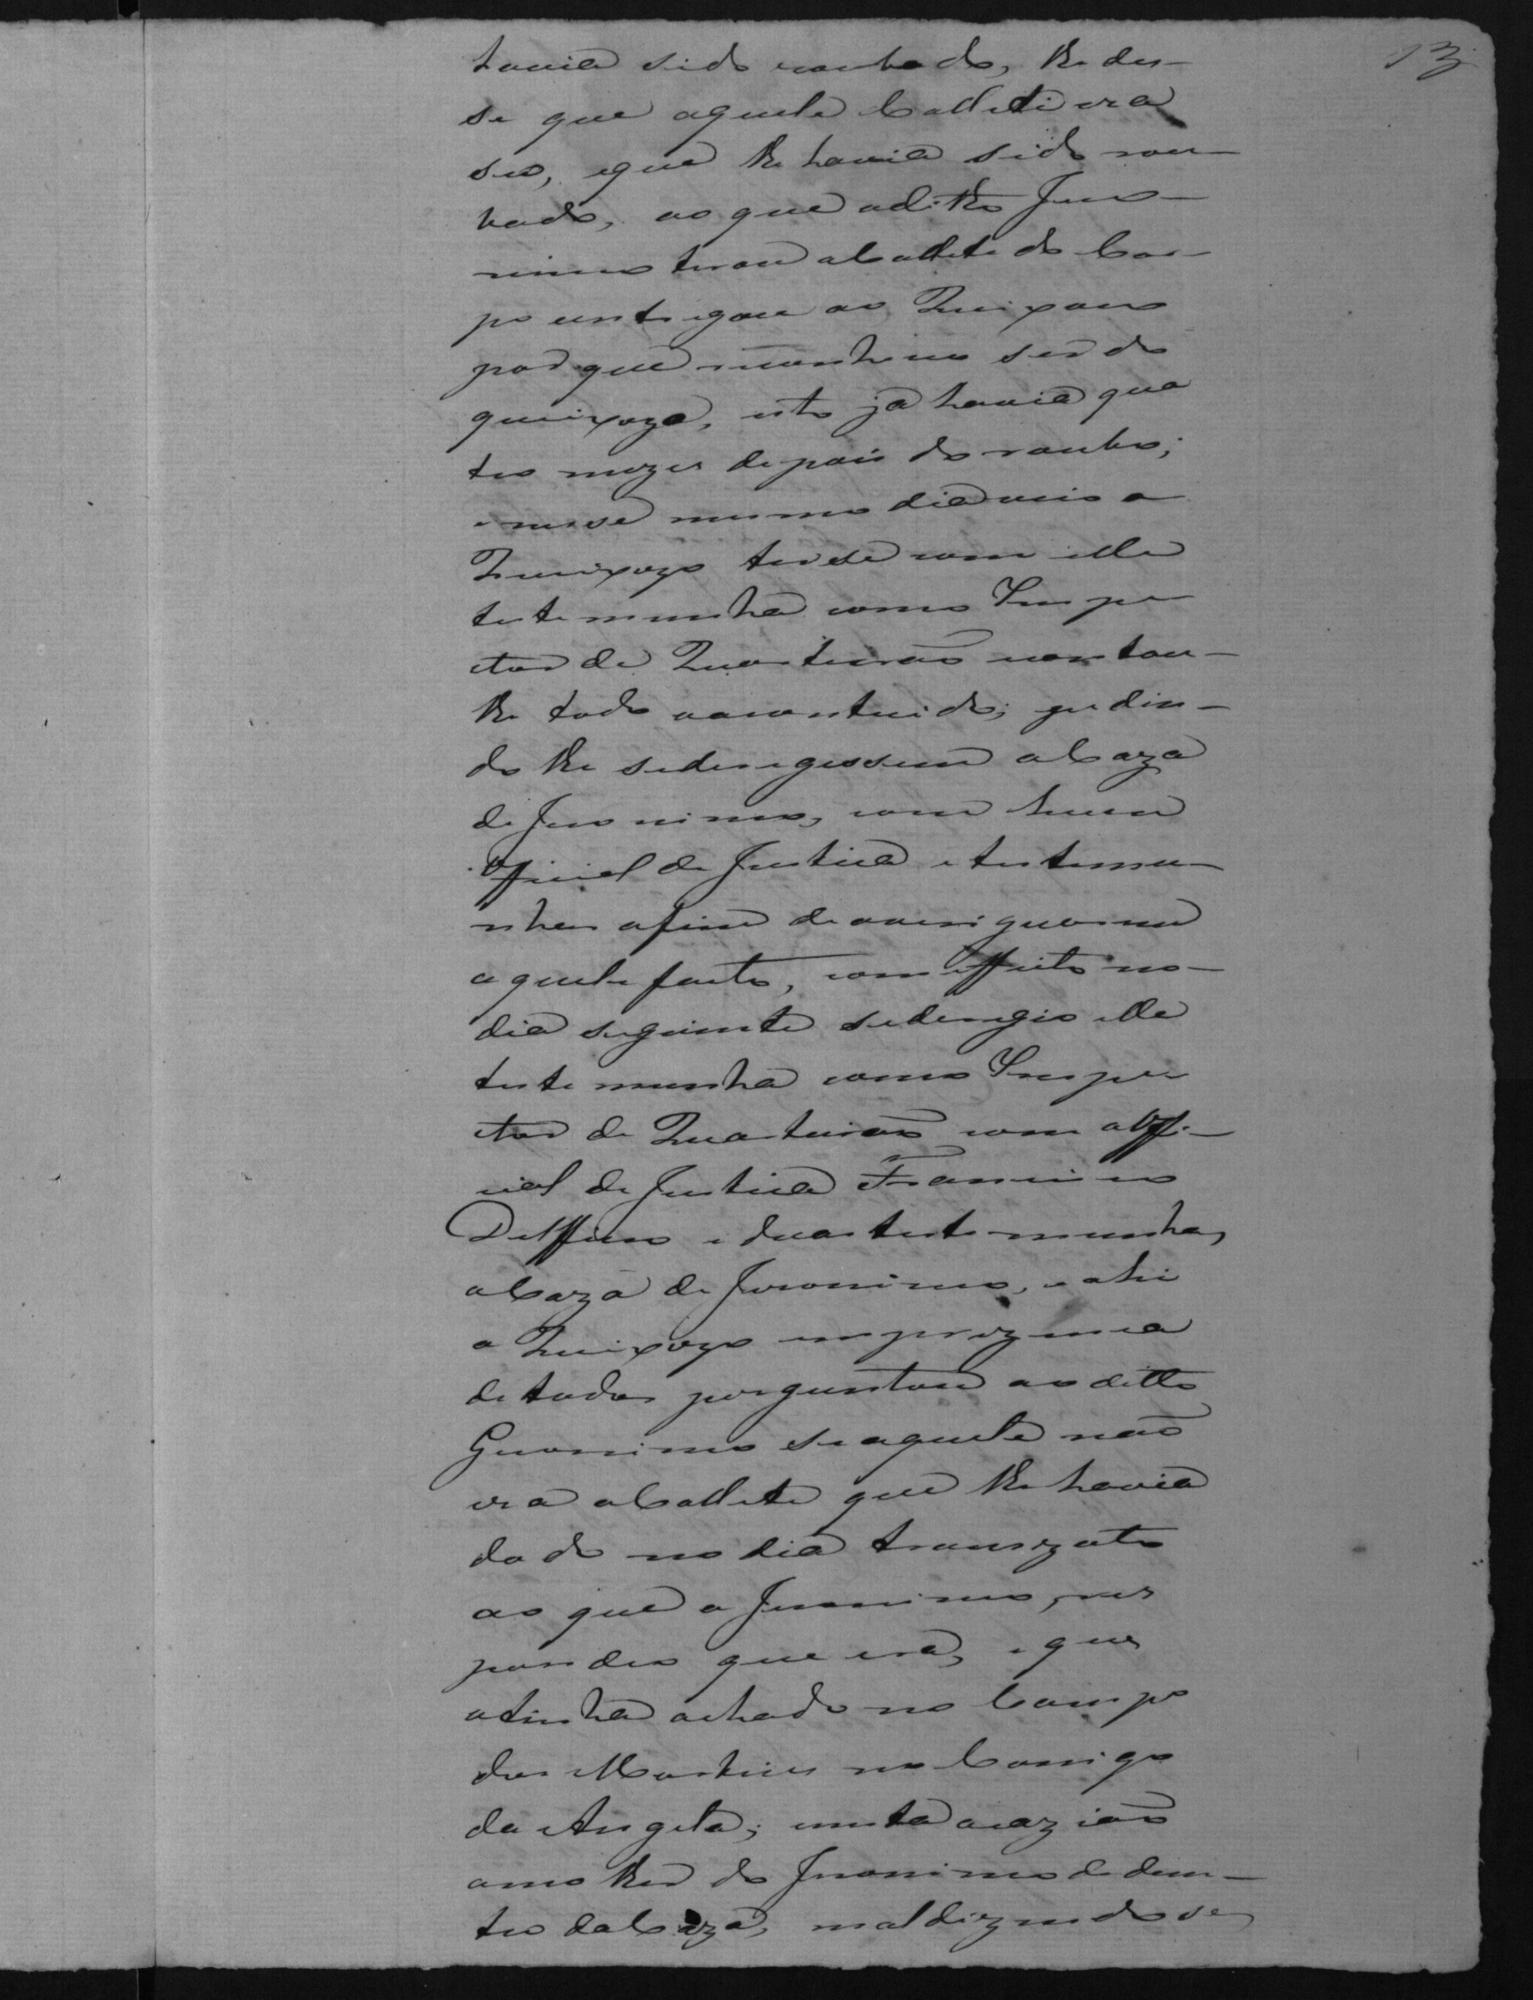 13
havia sido roubado, lhe dis-
se que aquele Collete era
seo, eque lhe havia sido rou-
bado, ao que oditto Jero-
nimo tirou o Collete do Cor-
po eentregou ao Queixoso
por que reconheceo ser do
queixozo, isto já havia qua
tro mezes depois do roubo;
e nesse mesmo dia veio o
Queixozo ter se com elle
testemunha como Inspe
ctor de Quarteirão contou-
lhe todo oacontecido, pedin-
do lhe sederegissem a Caza
de Jeronimo, com hum
Official de Justica e testemu-
nhas afim de averiguarem
aquele facto, com effeito no
dia seguinte sederegio elle
testemunha como Inspe
ctor de Quarteirão com o Offi-
cial de Justica Francisco
Delffino e duas testemunhas,
a Caza de Jeronimo, e ahi
o Queixozo em prezencia
de todos perguntou ao ditto
Geronimo se aquele não
era o Collete que lhe havia
dado no dia tranzato
ao que o Jeronimo, res
pondeo que era, e que
o tinha achado no Campo
dos Martins no Corrigo
da Angela; nesta ocazião
a mulher do Jeronimo de den-
tro da Caza, maldizendo se